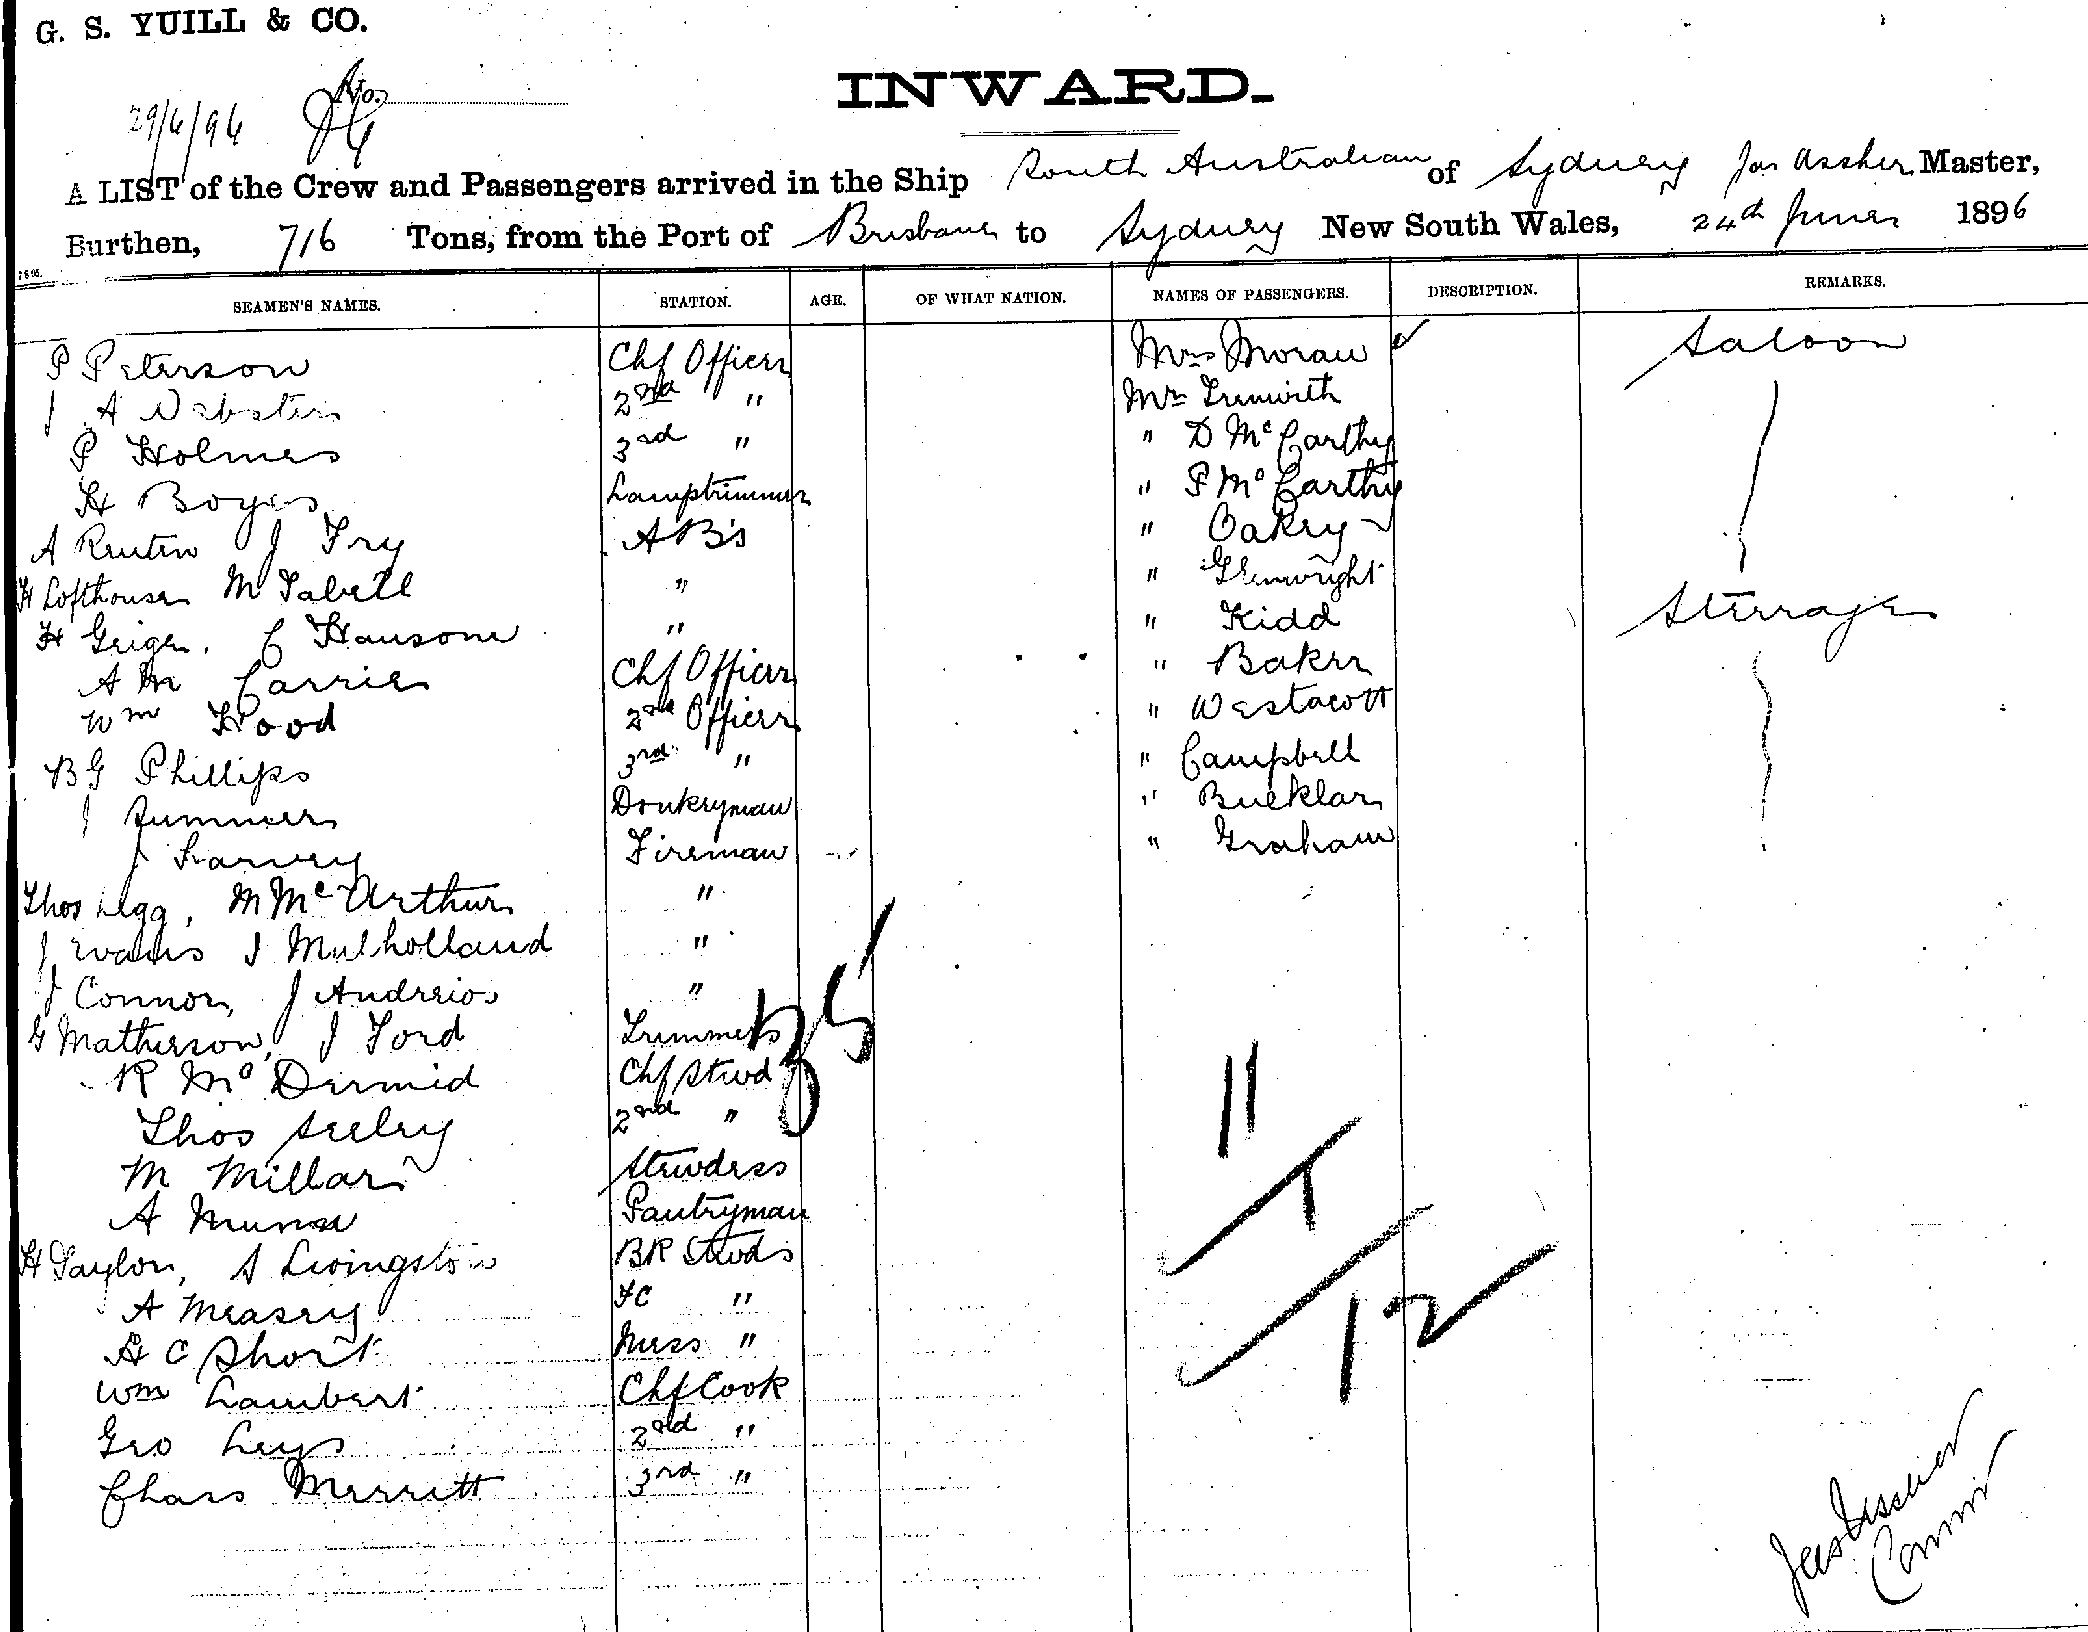 G. S. YUILL & CO.
No.
29/6/96
INWARD.
A LIST of the Crew and Passengers arrived in the Ship South Australian of Sydney Jas Assher Master,
Burthen, 716 Tons, from the Port of Brisbane to Sydney New South Wales, 24th June 1896
SEAMEN'S NAMES. STATION. AGE. OF WHAT NATION. NAMES OF PASSENGERS. DESCRIPTION. REMARKS.
P Peterson Chf Officer Mrs Moran Saloon
J A Webster 2nd " Mr Trenwith
P Holmes 3rd " " D McCarthy
H Boyes Lamptrimmer " P McCarthy
A Reuten J Fry AB's " Oakey
H Lofthouse M Tabell " " Glenwright
H Geiger, C Hansone " " Kidd Steerage
A M Carrie Chf Officer " Baker
Wm Hood 2nd Officer " Westacott
B G Phillips 3rd " " Campbell
J Summers Donkeyman " Bucklar
J Harvey Fireman " Graham
Thos Legg, M McArthur "
J Evans J Mulholland "
J Connor, J Andreios "
G Matherson, J Ford Trimmers
35
R McDermid Chf Stwd
11
Thos Seeley 2nd "
M Millar Stewdess
1
A Munro Pantryman
H Taylor, S Livingston BR Stwds
12
A Measey FC "
H C Short Mess "
Wm Lambert Chf Cook
Geo Leys 2nd "
Chas Merritt 3rd "
Jas Assher